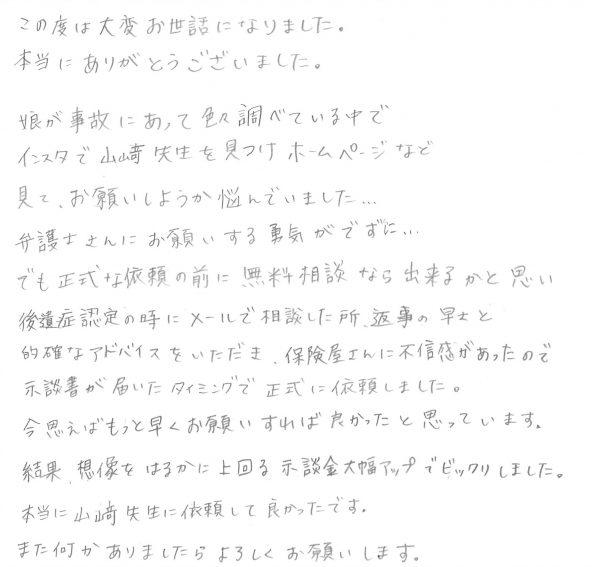 この度は大変お世話になりました。
本当にありがとうございました。
娘が事故にあって色々調べている中で
インスタで山﨑先生を見つけホームページなど
見て、お願いしようか悩んでいました…
弁護士さんにお願いする勇気がでずに…
でも正式な依頼の前に無料相談なら出来るかと思い
後遺症認定の時にメールで相談した所、返事の早さと
的確なアドバイスをいただき、保険屋さんに不信感があったので
示談書が届いたタイミングで正式に依頼しました。
今思えばもっと早くお願いすれば良かったと思っています。
結果、想像をはるかに上回る示談金大幅アップでビックリしました。
本当に山﨑先生に依頼して良かったです。
また何かありましたらよろしくお願いします。